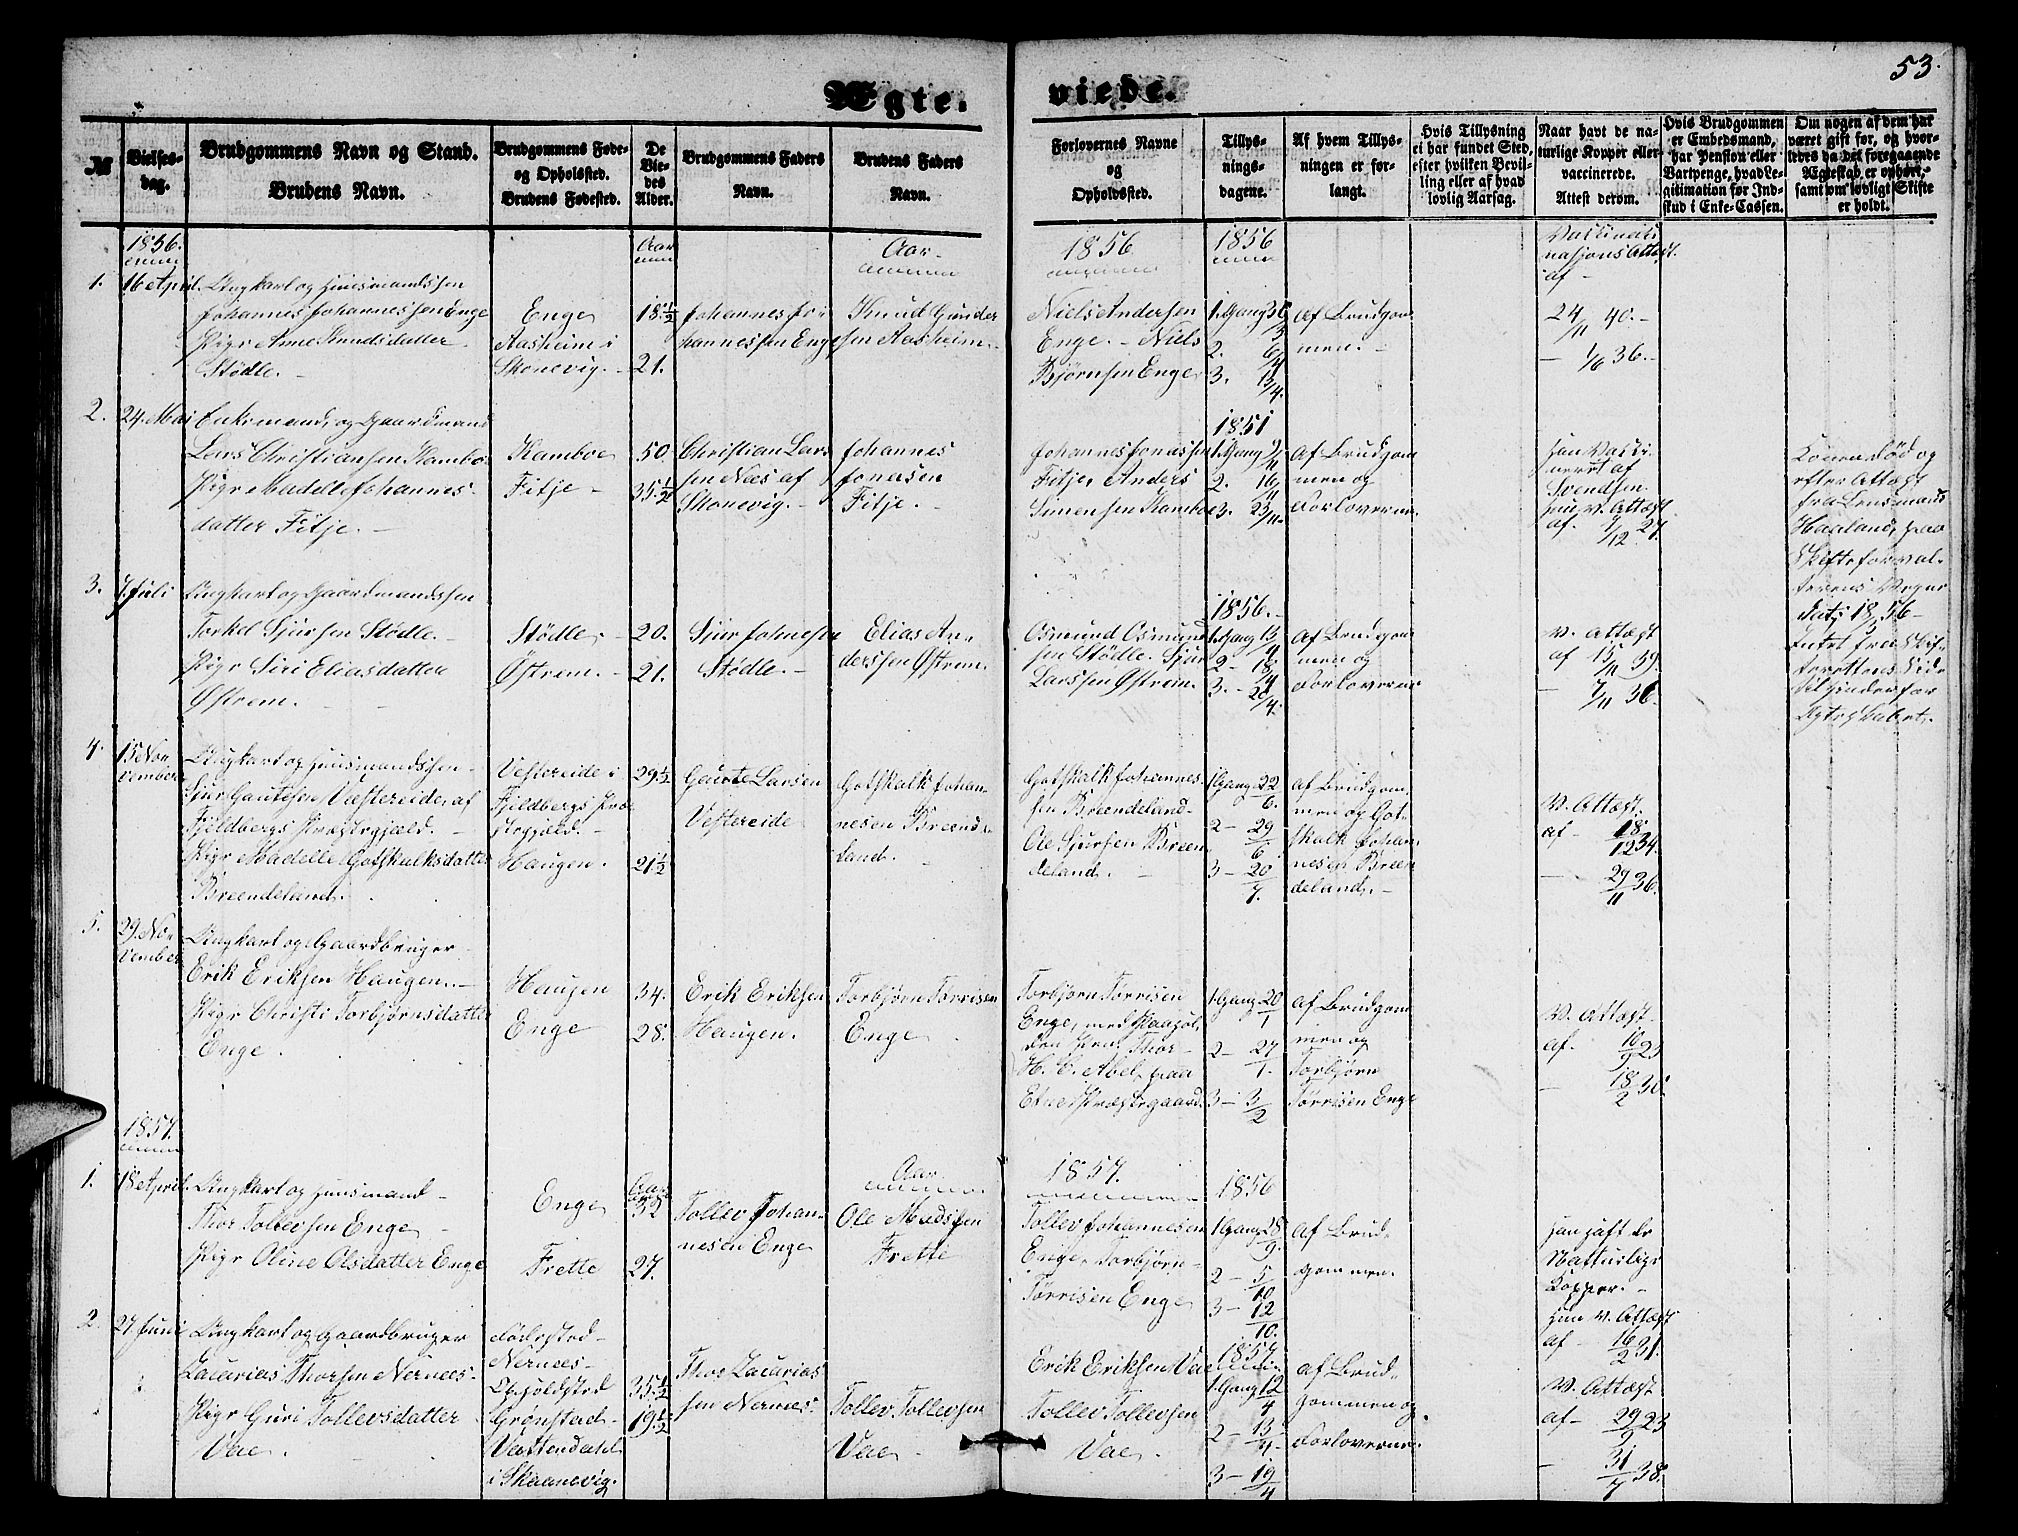 53.
Ægte.
viede.
№
Vielses-
dag.
Brudgommens Navn og Stand.
Brudens Navn.
Brudgommens Føde-
og Opholdsted.
Brudens Fødested.
De
Vie-
des
Alder.
Brudgommens Faders
Navn.
Brudens Faders
Navn.
Forlovernes Navne
og
Opholdssted.
Tillys-
nings-
dagene.
Af hvem Tillys-
ningen er for-
langt.
Hvis Tillysning
ei har fundet Sted,
efter hvilken Bevil-
ling eller af hvad
lovlig Aarsag.
Naar havt de na-
turlige Kopper eller
vaccinerede.
Attest derom.
Hvis Brudgommen
er Embedsmand,
har Pension eller
Vartpenge, hvad Le-
gitimation for Ind-
skud i Enke-Cassen.
Om nogen af dem har
været gift før, og hvor-
ledes da det foregaaende
Ægteskab er ophørt,
samt om lovligt Skifte
er holdt.
1856.
Aar
Aar
1856
1856
1. 16 April. Ungkarl og Huusmandssøn
Johannes Johannessen Enge
Pige Anne Knudsdatter
Stødle.
Enge
Aasheim i
Skonevig.
18½
21.
Johannes Jo-
hannessen Enge
Knud Gunder
sen Aasheim.
Niels Andersen
Enge. - Niels
Bjørnsen Enge
1. Gang 30/3
2. 6/4
3. 13/4.
af Brudgom
men.
24/11 40.
1/6 36.
2. 24. Mai Enkemand, og Gaardmand
Lars Christiansen Kamboe
Pige Madelle Johannes-
datter Fitje.
Kamboe
Fitje
50.
35½
Christian Lars
sen Næs af
Skonevig.
Johannes
Jonesen
Fitje.
Johannes Jonassen
Fitje, Anders
Simensen Kamboe
1851
1. Gang 9/11
2. 16/11
3. 23/11.
af Brudgom
men og
Forloverne.
Svendsen
Hun v. Attest
af. 7/12 27.
Konen død og
efter Attest
fra Lensmand
Haaland, paa
Skifteforval-
terens Vegne
3. 7. Juli Ungkarl og Gaardmandssøn
Torkel Sjursen Stødle.
Pige Siri Eliasdatter
Østrem.
Stødle,
Østrem.
20.
21.
Sjur Johnesen
Stødle.
Elias An-
derssen Østrem.
Osmund Osmund
sen Stødle. Sjur
Larssen Østrem.
1856.
1. Gang 13/4
2 - 18/4
3. - 20/4.
af Brudgom
men og
Forloverne
v. Attest
af 15/11 39.
7/11 36.
4. 15 No-
vember Ungkarl og Huusmandssøn
Sjur Gautesen Vestereide, af
Fjeldbergs Præstegjæld.
Pige Madelle Gotskalksdatter
Breendeland.
Vestereide i
Fjeldbergs Præ
stegjæld.
Haugen.
29½
21½
Gaute Larsen
Vestereide
Gotskalk Johan-
nesen Breende-
land.
Gotskalk Johannes-
sen Breendeland
Ole Sjursen Breen
deland.
1 Gang 22/6.
2 - 29/6.
3 - 20/7.
af Brudgom
men og Got-
skalk Johan-
nesen Breen
deland.
v. Attest.
af 18/12 34.
29/11 36.
5. 29. No-
vember Ungkarl og Gaardbruger
Erik Eriksen Haugen.
Pige Christi Torbjørnsdatter
Enge.
Haugen
Enge
34.
28.
Erik Eriksen
Haugen.
Torbjørn Tørrisen
Enge
Torbjørn Tørrisen
Enge,
H. C. Abel, paa
Etne Præstegaard.
1 Gang 20/1
2 - 27/1.
3 - 3/2
af Brudgom
men og
Torbjørn
Tørrisen Enge
v. Attest.
af. 16/9 23
18/2 30.
1857.
Aar
Aar
1857.
1856
1. 18 April. Ungkarl og Huusmand
Thor Tollevsen Enge
Pige Oline Olsdatter Enge
Enge
Frette
32
27.
Tollev Johan-
nesen Enge
Ole Madssen
Frette
Tollev Johannesen
Enge, Torbjørn
Tørrisen Enge
1 Gang 28/9.
2 - 5/10
3 - 12/10.
af Brud-
gommen.
Han haft de
Natturlige
Kopper.
Hun v. Attest
af - 16/2 31.
2. 27 Juni Ungkarl og Gaardbruger
Zacarias Thorsen Nernees.
Pige Guri Tollevsdatter
Vae.
Fødested
Nernees
Opholdsted
Grønstad
Vattendahl
i Skaanevig.
35½
19½
Thor Zacarias
sen Nernes.
Tollev Tollevsen
Vae
Erik Eriksen Vae
Tollev Tollevsen
Vae.
1857
1. Gang 12/4
2 - 13/4.
3 - 19/4
af Brud-
gommen og
Forloverne.
v. Attest
af - 29/9 23
31/7 38.